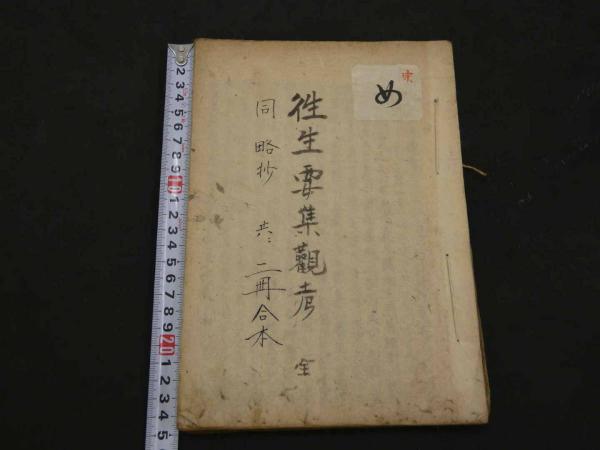 東
め
徃生要集觀考 全
同略抄 共ニ 二冊合本
2 3 4 5 6 7 8 9 10 1 2 3 4 5 6 7 8 9 20 1 2 3 4 5